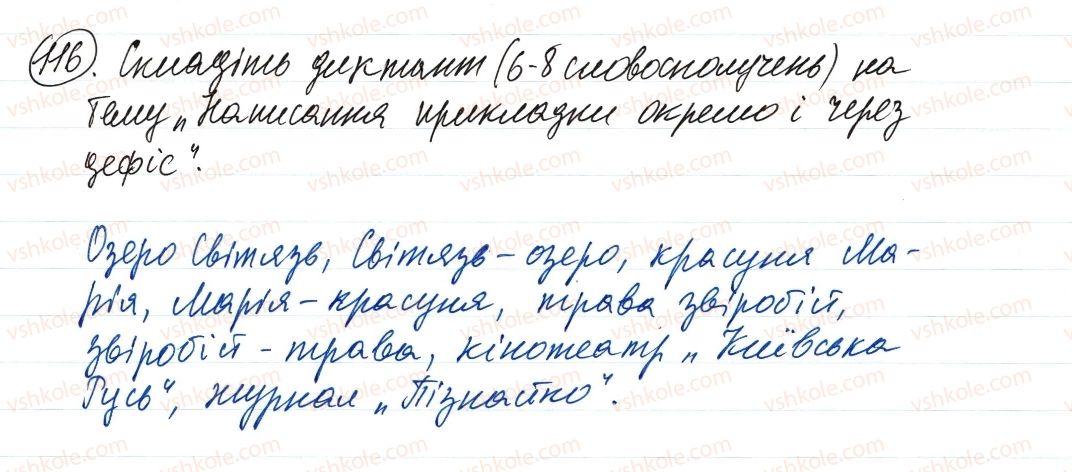 116. Складіть диктант (6-8 словосполучень) на
тему „Написання прикладки окремо і через
дефіс".
Озеро Світязь, Світязь-озеро, красуня Ма-
рія, Марія-красуня, трава звіробій,
звіробій-трава, кінотеатр „Київська
Русь", журнал „Пізнайко".